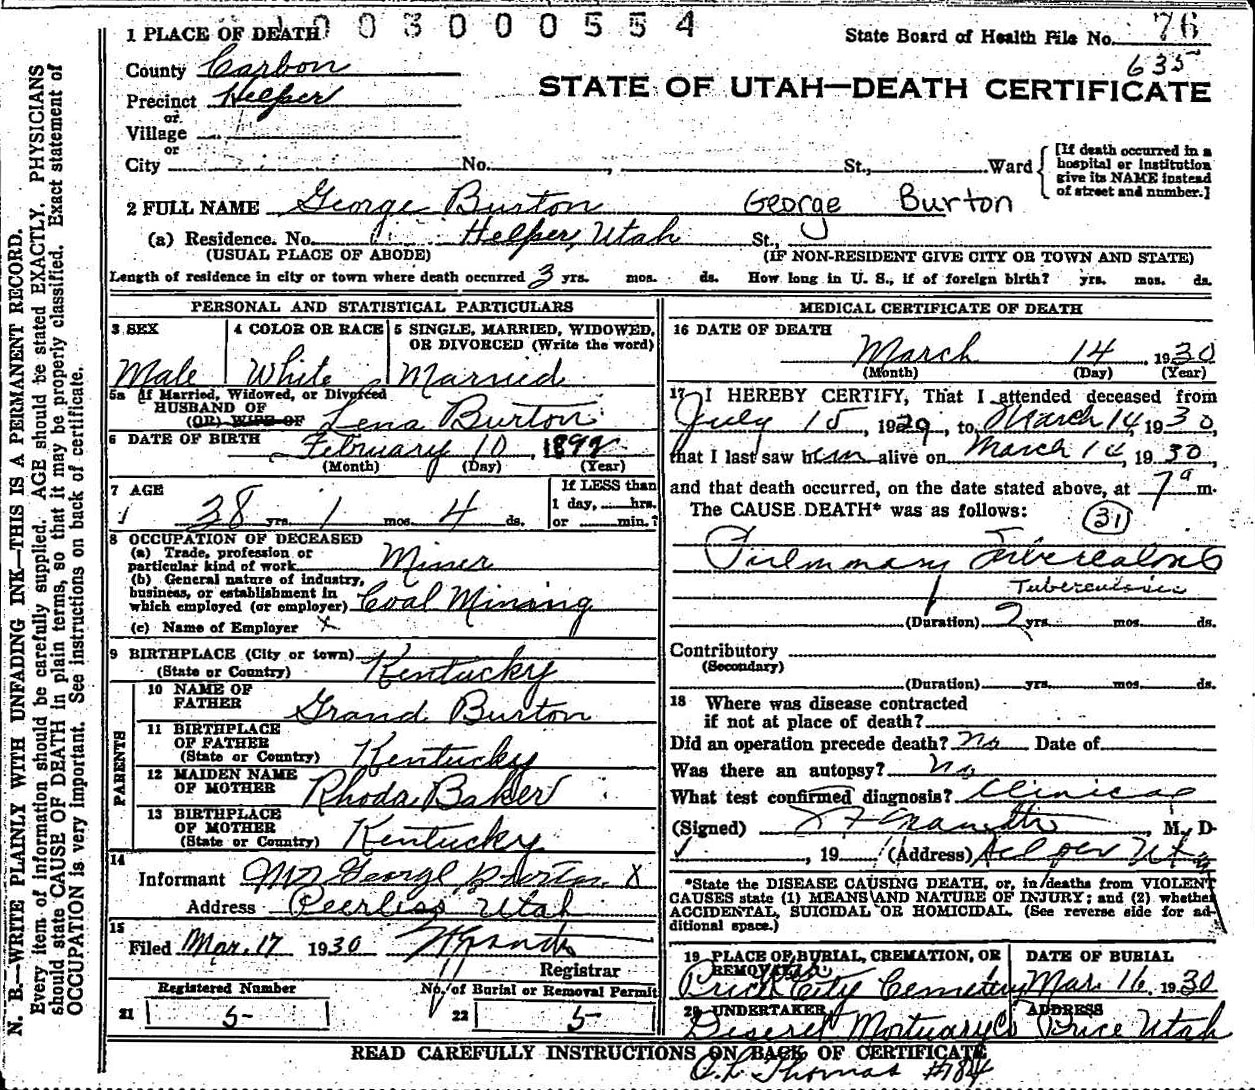 1 PLACE OF DEATH 003000554
State Board of Health File No. 76
635
County Carbon
STATE OF UTAH—DEATH CERTIFICATE
Precinct Helper
or
Village
or
City No. , St., Ward
[If death occurred in a
hospital or institution
give its NAME instead
of street and number.]
2 FULL NAME George Burton George Burton
(a) Residence. No. Helper, Utah St.,
(USUAL PLACE OF ABODE) (IF NON-RESIDENT GIVE CITY OR TOWN AND STATE)
Length of residence in city or town where death occurred 3 yrs. mos. ds. How long in U. S., if of foreign birth? yrs. mos. ds.
PERSONAL AND STATISTICAL PARTICULARS
3 SEX
Male
4 COLOR OR RACE
White
5 SINGLE, MARRIED, WIDOWED,
OR DIVORCED (Write the word)
Married
5a If Married, Widowed, or Divorced
HUSBAND OF
(OR) WIFE OF Lena Burton
6 DATE OF BIRTH February 10, 1892
(Month) (Day) (Year)
7 AGE
38 yrs. 1 mos. 4 ds.
If LESS than
1 day, hrs.
or min.?
8 OCCUPATION OF DECEASED
(a) Trade, profession or
particular kind of work Miner
(b) General nature of industry,
business, or establishment in
which employed (or employer) Coal Mining
(c) Name of Employer X
9 BIRTHPLACE (City or town)
(State or Country) Kentucky
PARENTS
10 NAME OF
FATHER Grand Burton
11 BIRTHPLACE
OF FATHER
(State or Country) Kentucky
12 MAIDEN NAME
OF MOTHER Rhoda Baker
13 BIRTHPLACE
OF MOTHER
(State or Country) Kentucky
14
Informant Mrs George Burton X
Address Peerless Utah
15
Filed Mar. 17 1930
Registrar
Registered Number
21 5
No. of Burial or Removal Permit
22 5
MEDICAL CERTIFICATE OF DEATH
16 DATE OF DEATH
March 14, 1930
(Month) (Day) (Year)
17 I HEREBY CERTIFY, That I attended deceased from
July 15, 1929, to March 14, 1930,
that I last saw him alive on March 14, 1930,
and that death occurred, on the date stated above, at 7 a m.
The CAUSE DEATH* was as follows: (31)
Pulmonary Tuberculosis
Tuberculosis
(Duration) 2 yrs. mos. ds.
Contributory
(Secondary)
(Duration) yrs. mos. ds.
18 Where was disease contracted
if not at place of death?
Did an operation precede death? No Date of
Was there an autopsy? No
What test confirmed diagnosis? Clinical
(Signed) , M. D.
, 19 (Address) Helper Utah
*State the DISEASE CAUSING DEATH, or, in deaths from VIOLENT
CAUSES state (1) MEANS AND NATURE OF INJURY; and (2) whether
ACCIDENTAL, SUICIDAL OR HOMICIDAL. (See reverse side for ad-
ditional space.)
19 PLACE OF BURIAL, CREMATION, OR
REMOVAL
Price City Cemetery
DATE OF BURIAL
Mar. 16, 1930
20 UNDERTAKER
Deseret Mortuary Co
ADDRESS
Price Utah
READ CAREFULLY INSTRUCTIONS ON BACK OF CERTIFICATE
O. L. Thomas #784
N. B.—WRITE PLAINLY WITH UNFADING INK—THIS IS A PERMANENT RECORD.
Every item of information should be carefully supplied. AGE should be stated EXACTLY. PHYSICIANS
should state CAUSE OF DEATH in plain terms, so that it may be properly classified. Exact statement of
OCCUPATION is very important. See instructions on back of certificate.